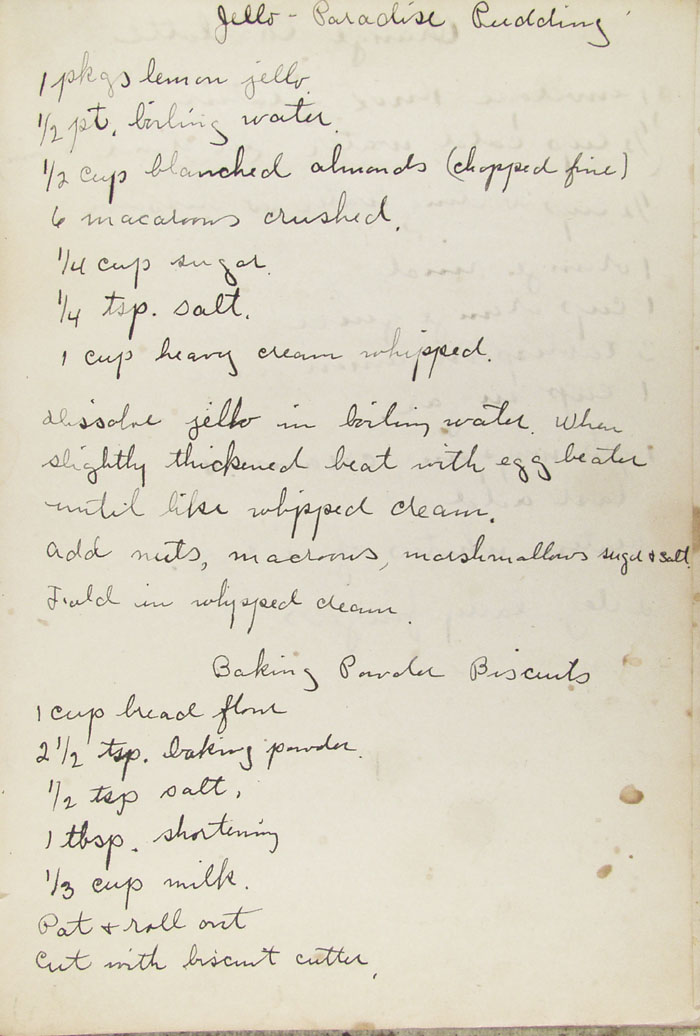 Jello - Paradise Pudding
1 pkgs lemon jello.
1/2 pt. boiling water.
1/2 cup blanched almonds (chopped fine)
6 macaroons crushed.
1/4 cup sugar.
1/4 tsp. salt.
1 cup heavy cream whipped.
dissolve jello in boiling water. When
slightly thickened beat with egg beater
until like whipped cream.
add nuts, macroons, marshmallows sugar & salt.
Fold in whipped cream.
Baking Powder Biscuits
1 cup bread flour
2 1/2 tsp. baking powder.
1/2 tsp salt.
1 tbsp. shortening
1/3 cup milk.
Pat & roll out
Cut with biscuit cutter.